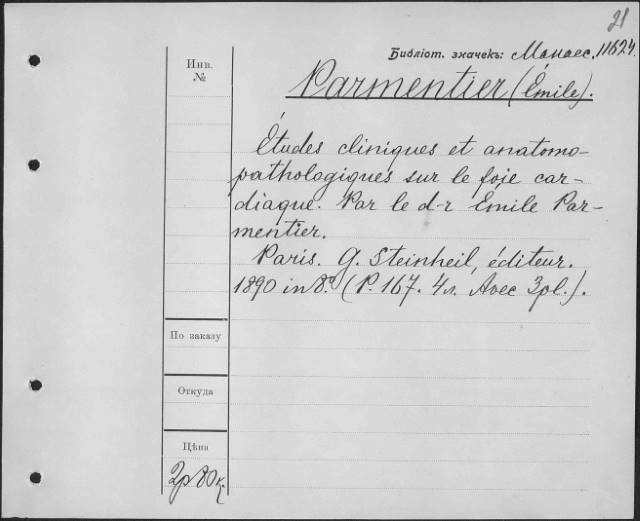 21
Библіот. значекъ: Манаес. 11624.
Инв.
№
Parmentier (Émile).
Études cliniques et anatomo-
pathologiques sur le foie car-
diaque. Par le d-r Emile Par-
mentier.
Paris. G. Steinheil, éditeur.
1890 in 8º (P. 167. 4 л. Avec 3 pl.).
По заказу
Откуда
Цѣна
2р 80к